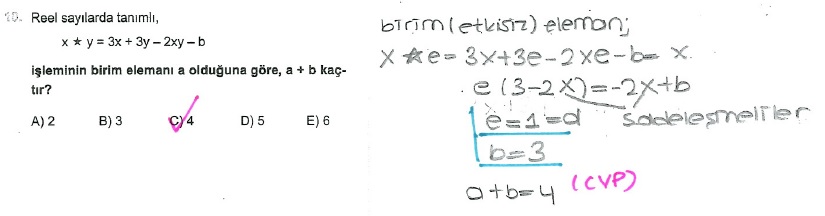 15. Reel sayılarda tanımlı,
x ★ y = 3x + 3y – 2xy – b
işleminin birim elemanı a olduğuna göre, a + b kaç-
tır?
A) 2 B) 3 C) 4 D) 5 E) 6
birim (etkisiz) eleman;
x ★ e = 3x+3e-2xe-b= x
e (3-2x)=-2x+b
e=1=a sadeleşmeliler
b=3
a+b=4 (CVP)